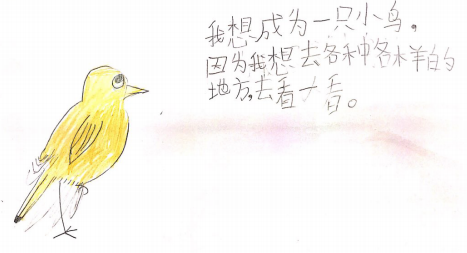 我想成为一只小鸟。
因为我想去各种各样的的
地方,去看一看。